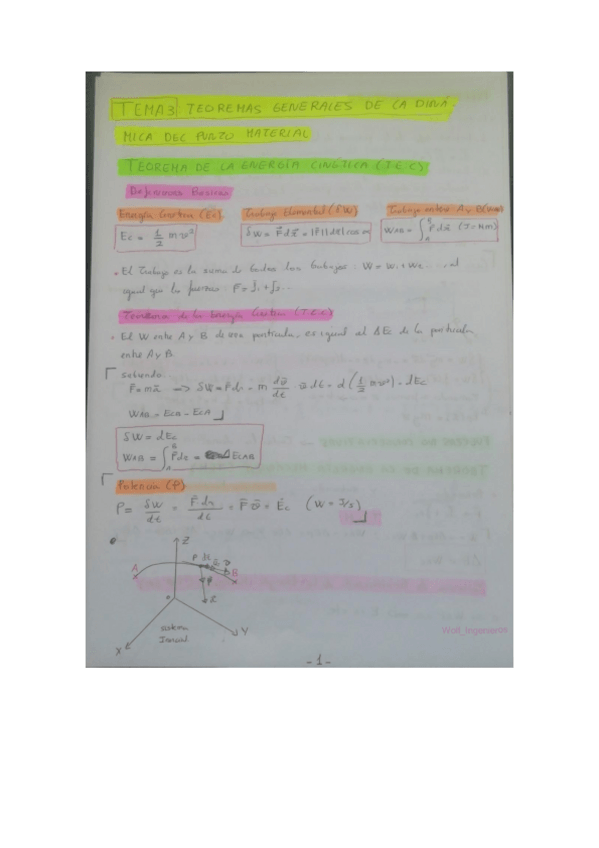 TEMA 3. TEOREMAS GENERALES DE LA DINÁ-
MICA DEL PUNTO MATERIAL
TEOREMA DE LA ENERGÍA CINÉTICA (T.E.C)
Definiciones Básicas
Energía Cinética (Ec) Trabajo Elemental (δW) Trabajo entre A y B
Ec = 1/2 m v² δW = F⃗ dr⃗ = |F||dr| cos α WAB = ∫_A^B F dr (J = N·m)
• El trabajo es la suma de todos los trabajos. W = W₁ + W₂ ... , al
igual que la fuerza F = f₁ + f₂...
Teorema de la Energía Cinética (T.E.C)
• El W entre A y B de una partícula, es igual al ΔE de la partícula
entre A y B.
sabiendo:
F = ma⃗ → δW = F dr = m dv⃗/dt · v dt = d(1/2 m v²) = dEc
WAB = EcB - EcA
δW = dEc
WAB = ∫_A^B F dr = EcAB
Potencia (P)
P = δW/dt = F⃗ dr/dt = F⃗ v⃗ = Ėc (W = J/s)
Z
A P B
F
R
o
sistema
Inercial
X Y
Woli_Ingenieros
- 1 -